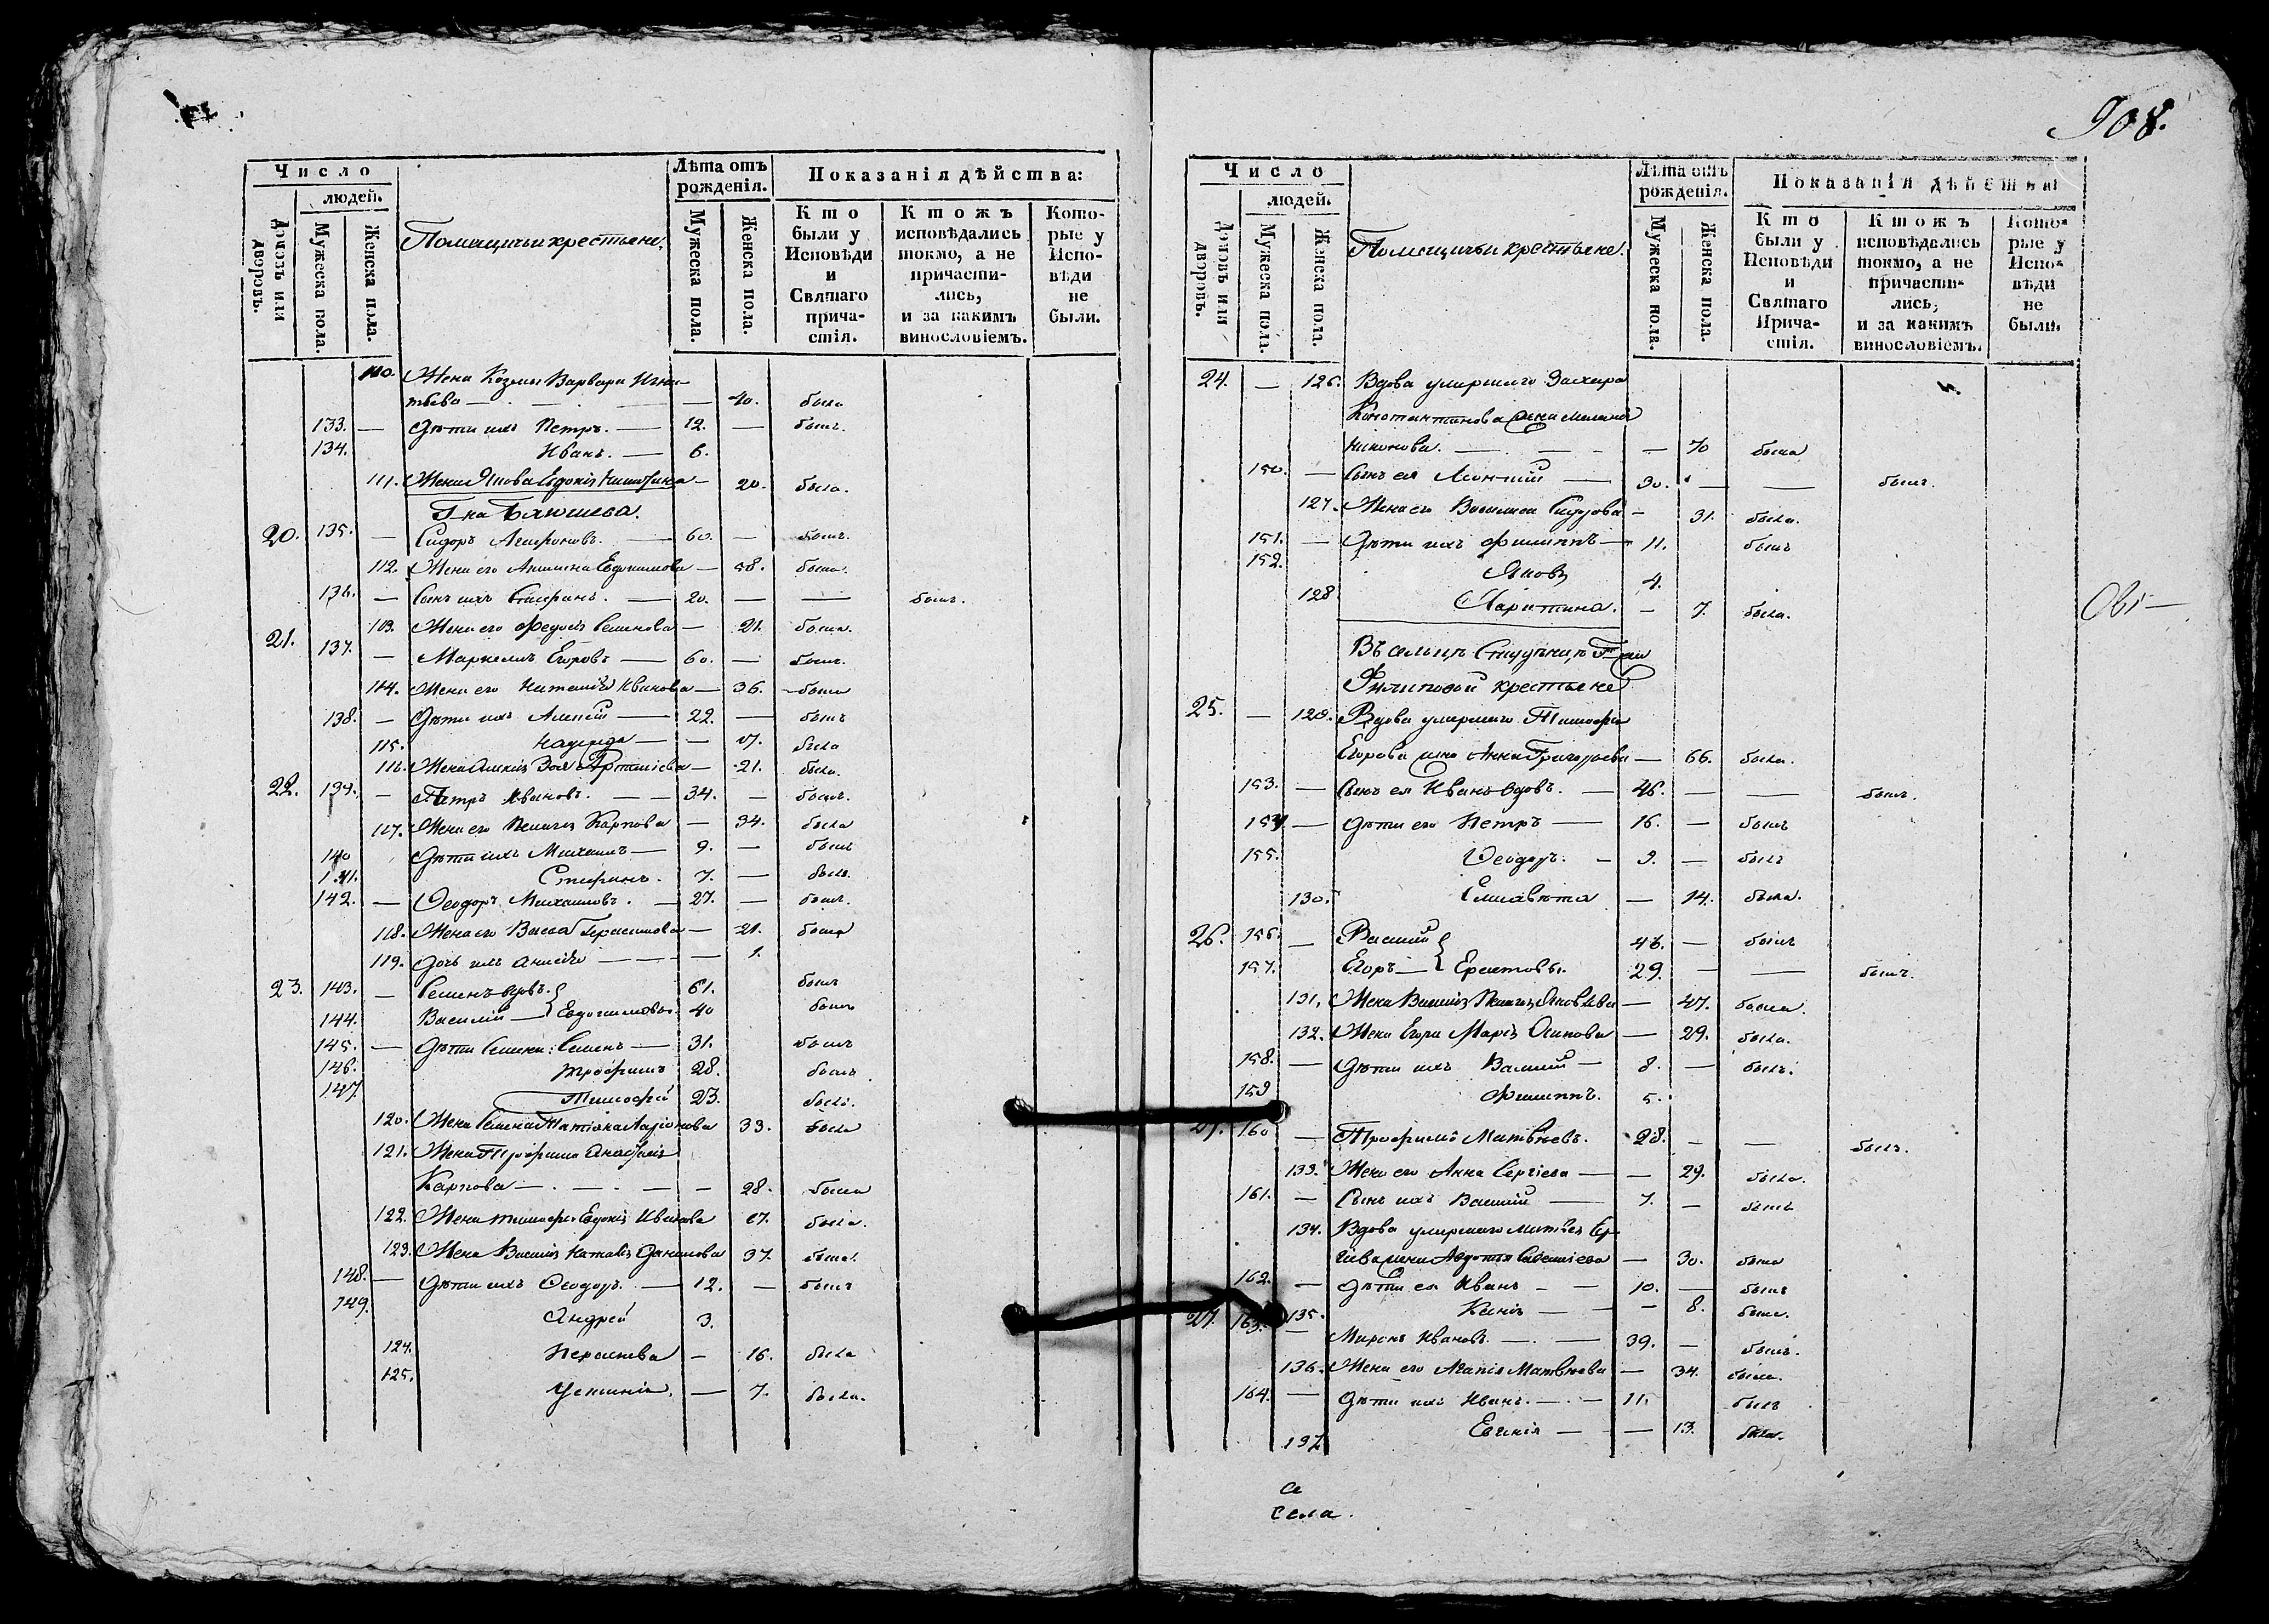 908.
Число
людей.
Домовъ или дворовъ.
Мужеска пола.
Женска пола.
Помещичьи крестьяне.
Лѣта отъ рожденія.
Мужеска пола.
Женска пола.
Показанія дѣйства:
Кто были у Исповѣди и Святаго причастія.
Ктожъ исповѣдались токмо, а не причастились, и за какимъ винословіемъ.
Которые у Исповѣди не были.
110. Жена Козмы Варвара Игна-
тьева — 40. была
133. — Дѣти ихъ Петръ. — 12. — былъ.
134. Иванъ. — 6.
111. Жена Якова Евдокія Никитина — 20. была.
Г-на
20. 135. — Сидоръ — 60. — былъ.
112. Жена его Евдокимова — 58. была.
136. — Сынъ ихъ — 20. — — былъ.
113. Жена его Федосія Семенова — 21. была.
21. 137. — Маркелъ Егоровъ — 60. — былъ.
114. Жена его Наталія Иванова — 36. — была
138. — Дѣти ихъ Алексій — 22. — былъ
115. Надежда — — 17. была
116. Жена Алексія Зоя — 21. была.
22. 139. — Петръ Ивановъ. — 34. — былъ.
117. Жена его Пелагія Карпова — 34. была
140 Дѣти ихъ Михаилъ — 9. — былъ
141. Стефанъ. 7. — былъ.
142. — Ѳеодоръ Михаиловъ. — 27. — былъ.
118. Жена его Васса Герасимова — 21. была
119. Дочь ихъ Анисія — — — 1.
23. 143. — Семенъ вдовъ. 61. былъ
144. Василій — Евдокимовы. 40 былъ
145. — Дѣти Семена: Семенъ — 31. былъ
146. Трофимъ 28. былъ
147. Тимофей 23. былъ.
120. Жена Семена Татіана Ларіонова 33. была
121. Жена Трофима Анафисія
Карпова — — — 28. была
122. Жена Тимофея Евдокія Иванова 27. была.
123. Жена Василія Наталія Данилова 37. была.
148. — Дѣти ихъ Ѳеодоръ. — 12. — былъ
149. Андрей 3.
124. — 16. была
125. Устинія. — 7. была.
Число
людей.
Домовъ или дворовъ.
Мужеска пола.
Женска пола.
Помещичьи крестьяне.
Лѣта отъ рожденія.
Мужеска пола.
Женска пола.
Показанія дѣйства
Кто были у Исповѣди и Святаго Причастія.
Ктожъ исповѣдались токмо, а не причастились, и за какимъ винословіемъ.
Которые у Исповѣди не были.
24. — 126. Вдова умершаго Захара
Константинова жена Меланія
Никонова. — — 70 была
150. — Сынъ ея Леонтій — 30. — — былъ.
127. Жена его Василиса Сидорова — 31. была.
151. — Дѣти ихъ Филиппъ — 11. былъ
152. Яковъ 4.
128 Харитина. — 7. была.
Въ сельцѣ Студенцѣ Г-жи
Филиповой крестьяне
25. — 129. Вдова умершаго Тимофея
Егорова жена Анна Григорьева — 66. была.
153. — Сынъ ея Иванъ вдовъ. — 46. — — былъ.
154 — Дѣти его Петръ — 16. — былъ
155. Ѳеодоръ. — 9. — былъ
130. Елисавета — 14. была.
26. 156. — Василій 46. — былъ
157. Егоръ — 29. — — былъ.
131. Жена Василія Пелагія Яковлева — 47. была.
132. Жена Егора Марія Осипова — 29. была.
158. — Дѣти ихъ Василій — 8. — былъ.
159 Филиппъ. 5.
27. 160 — Трофимъ Матвѣевъ. 28. — — былъ.
133. Жена его Анна Сергіева — — 29. была.
161. — Сынъ ихъ Василій — 7. — былъ
134. Вдова умершаго Матвея Ер-
жена Авдотья Савельева — 30. была
162. — Дѣти ея Иванъ — — 10. — былъ
135. Ксенія — — 8. была.
27. 163. — Миронъ Ивановъ. — 39. — былъ.
136. Жена его Агапія Матвѣева — 34. была.
164. — Дѣти ихъ Иванъ. — 11. былъ
137 Евгенія — — 13. была.
села.